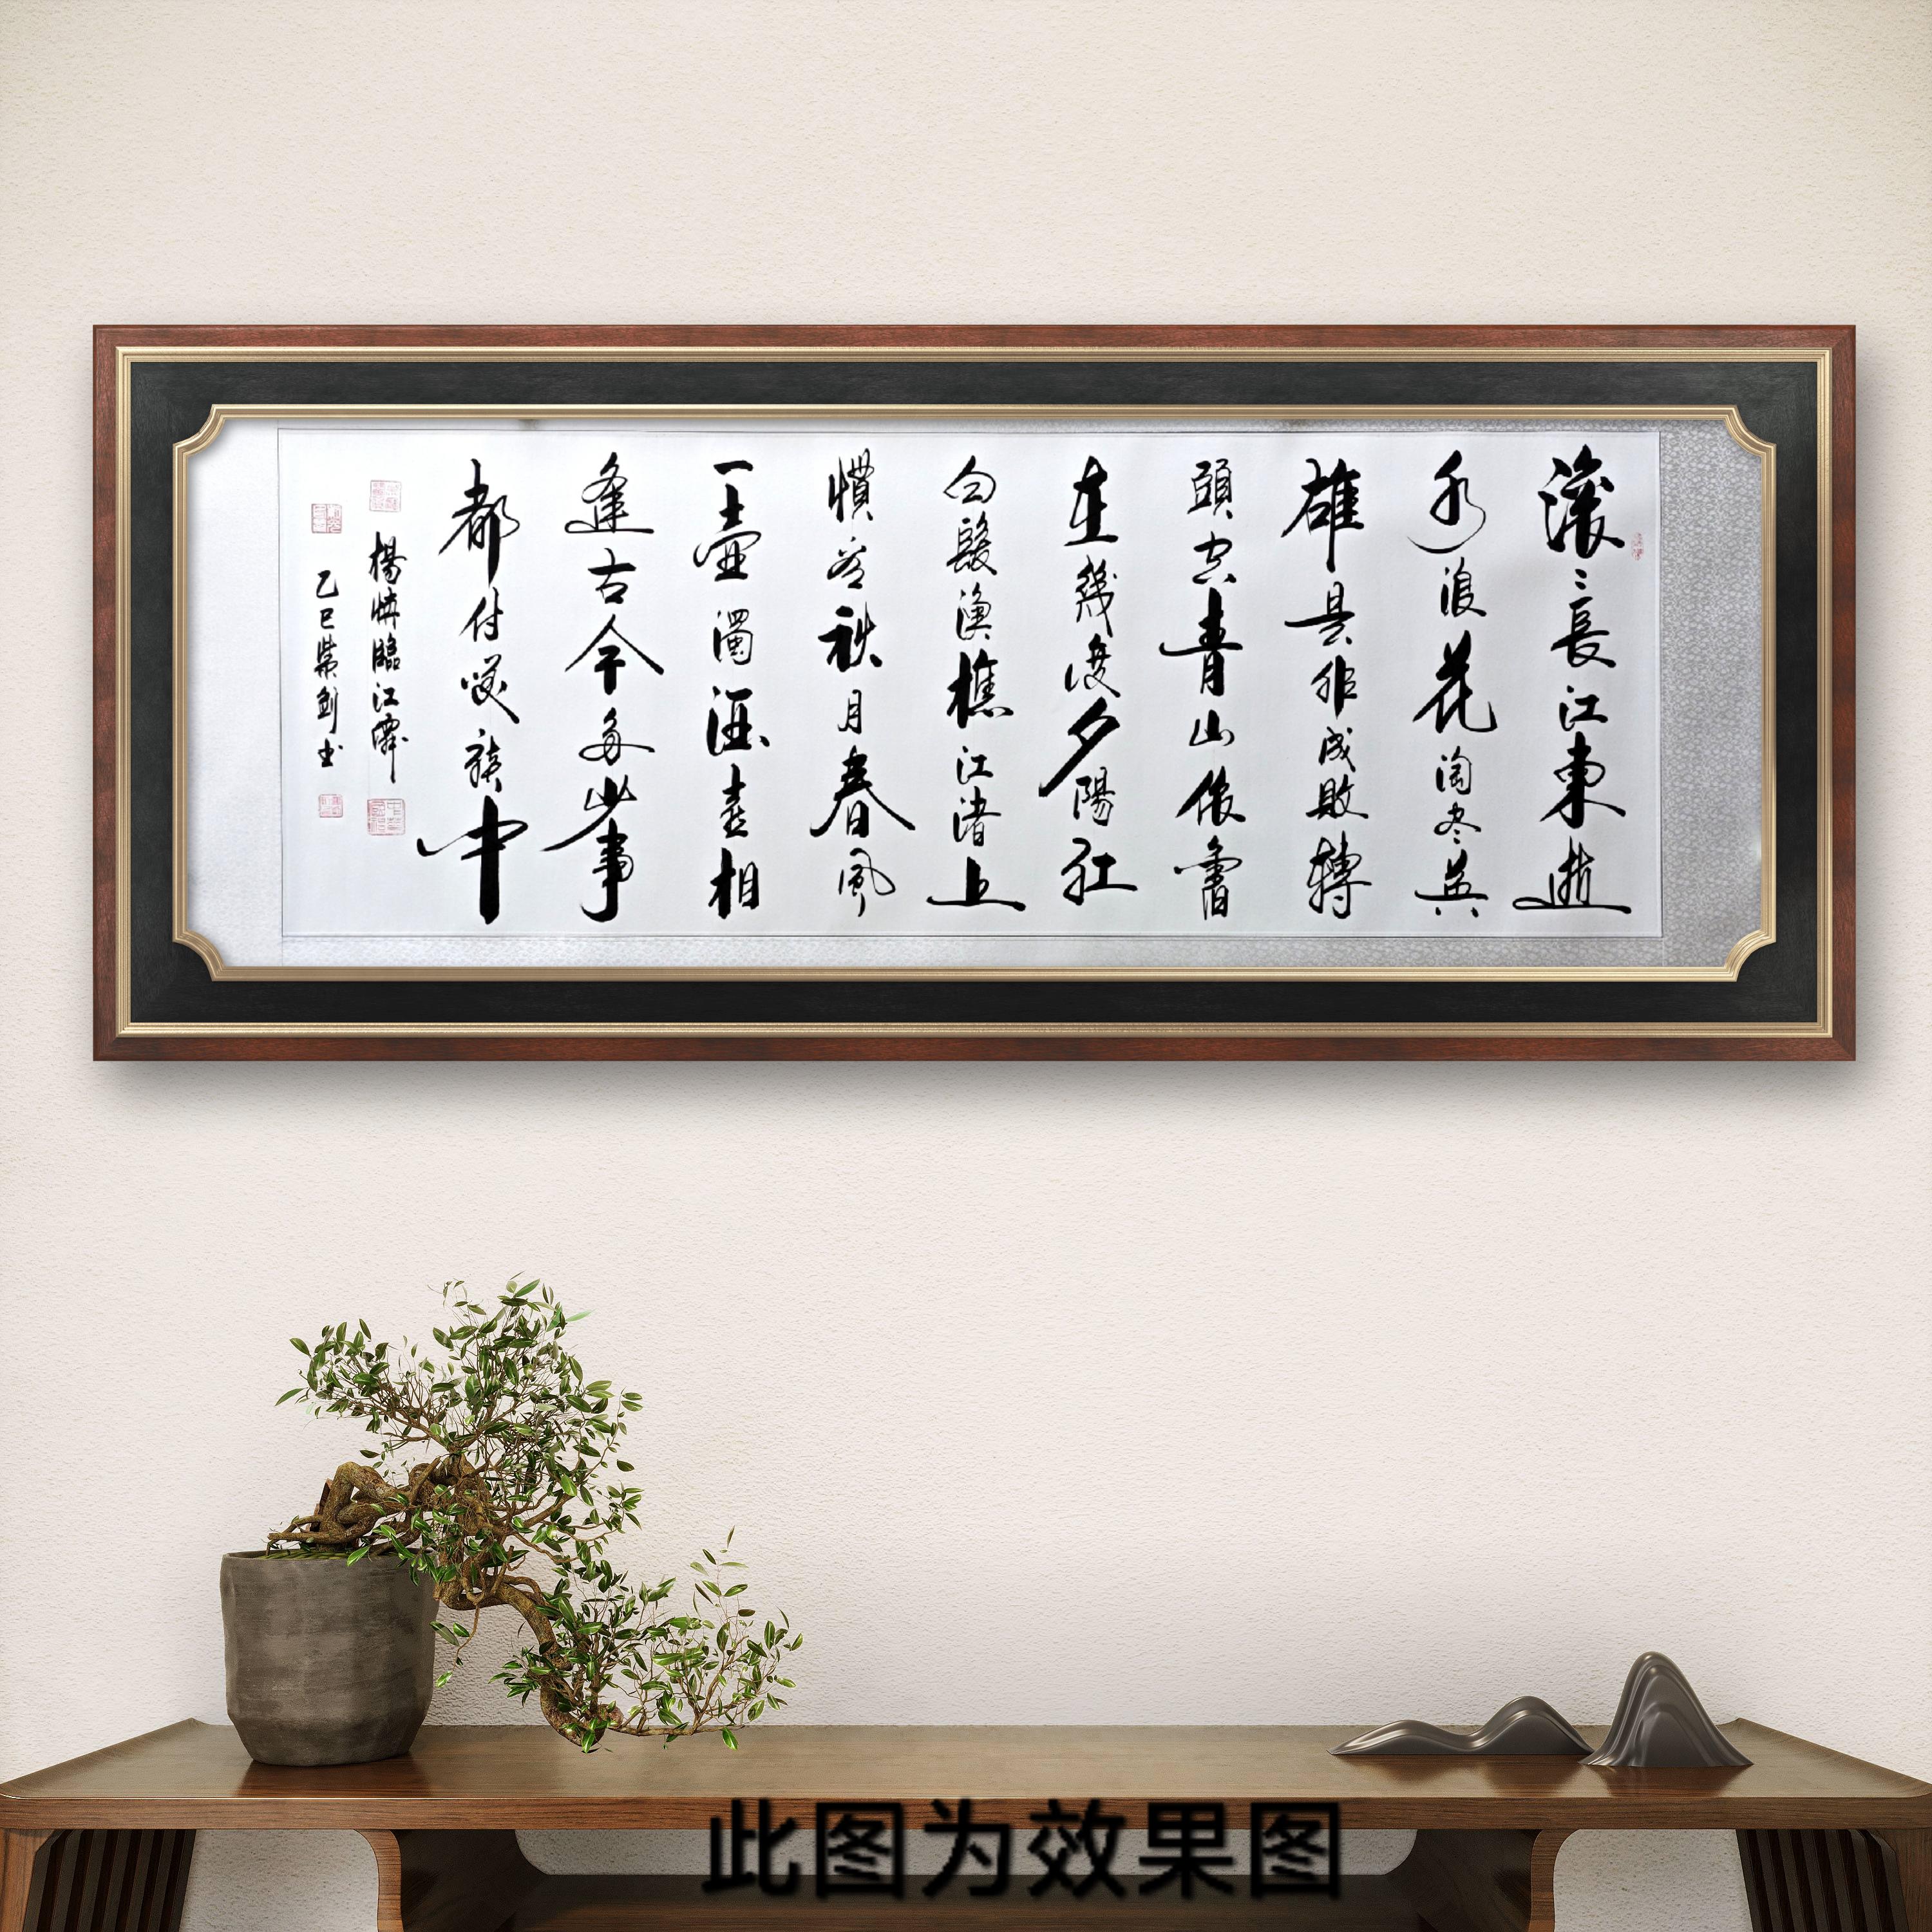 滚滚長江東逝
水浪花淘尽英
雄是非成敗轉
頭空青山依舊
在幾度夕陽紅
白髮漁樵江渚上
慣看秋月春風
一壺濁酒喜相
逢古今多少事
都付笑談中
楊慎臨江僊
乙巳劍书
此图为效果图